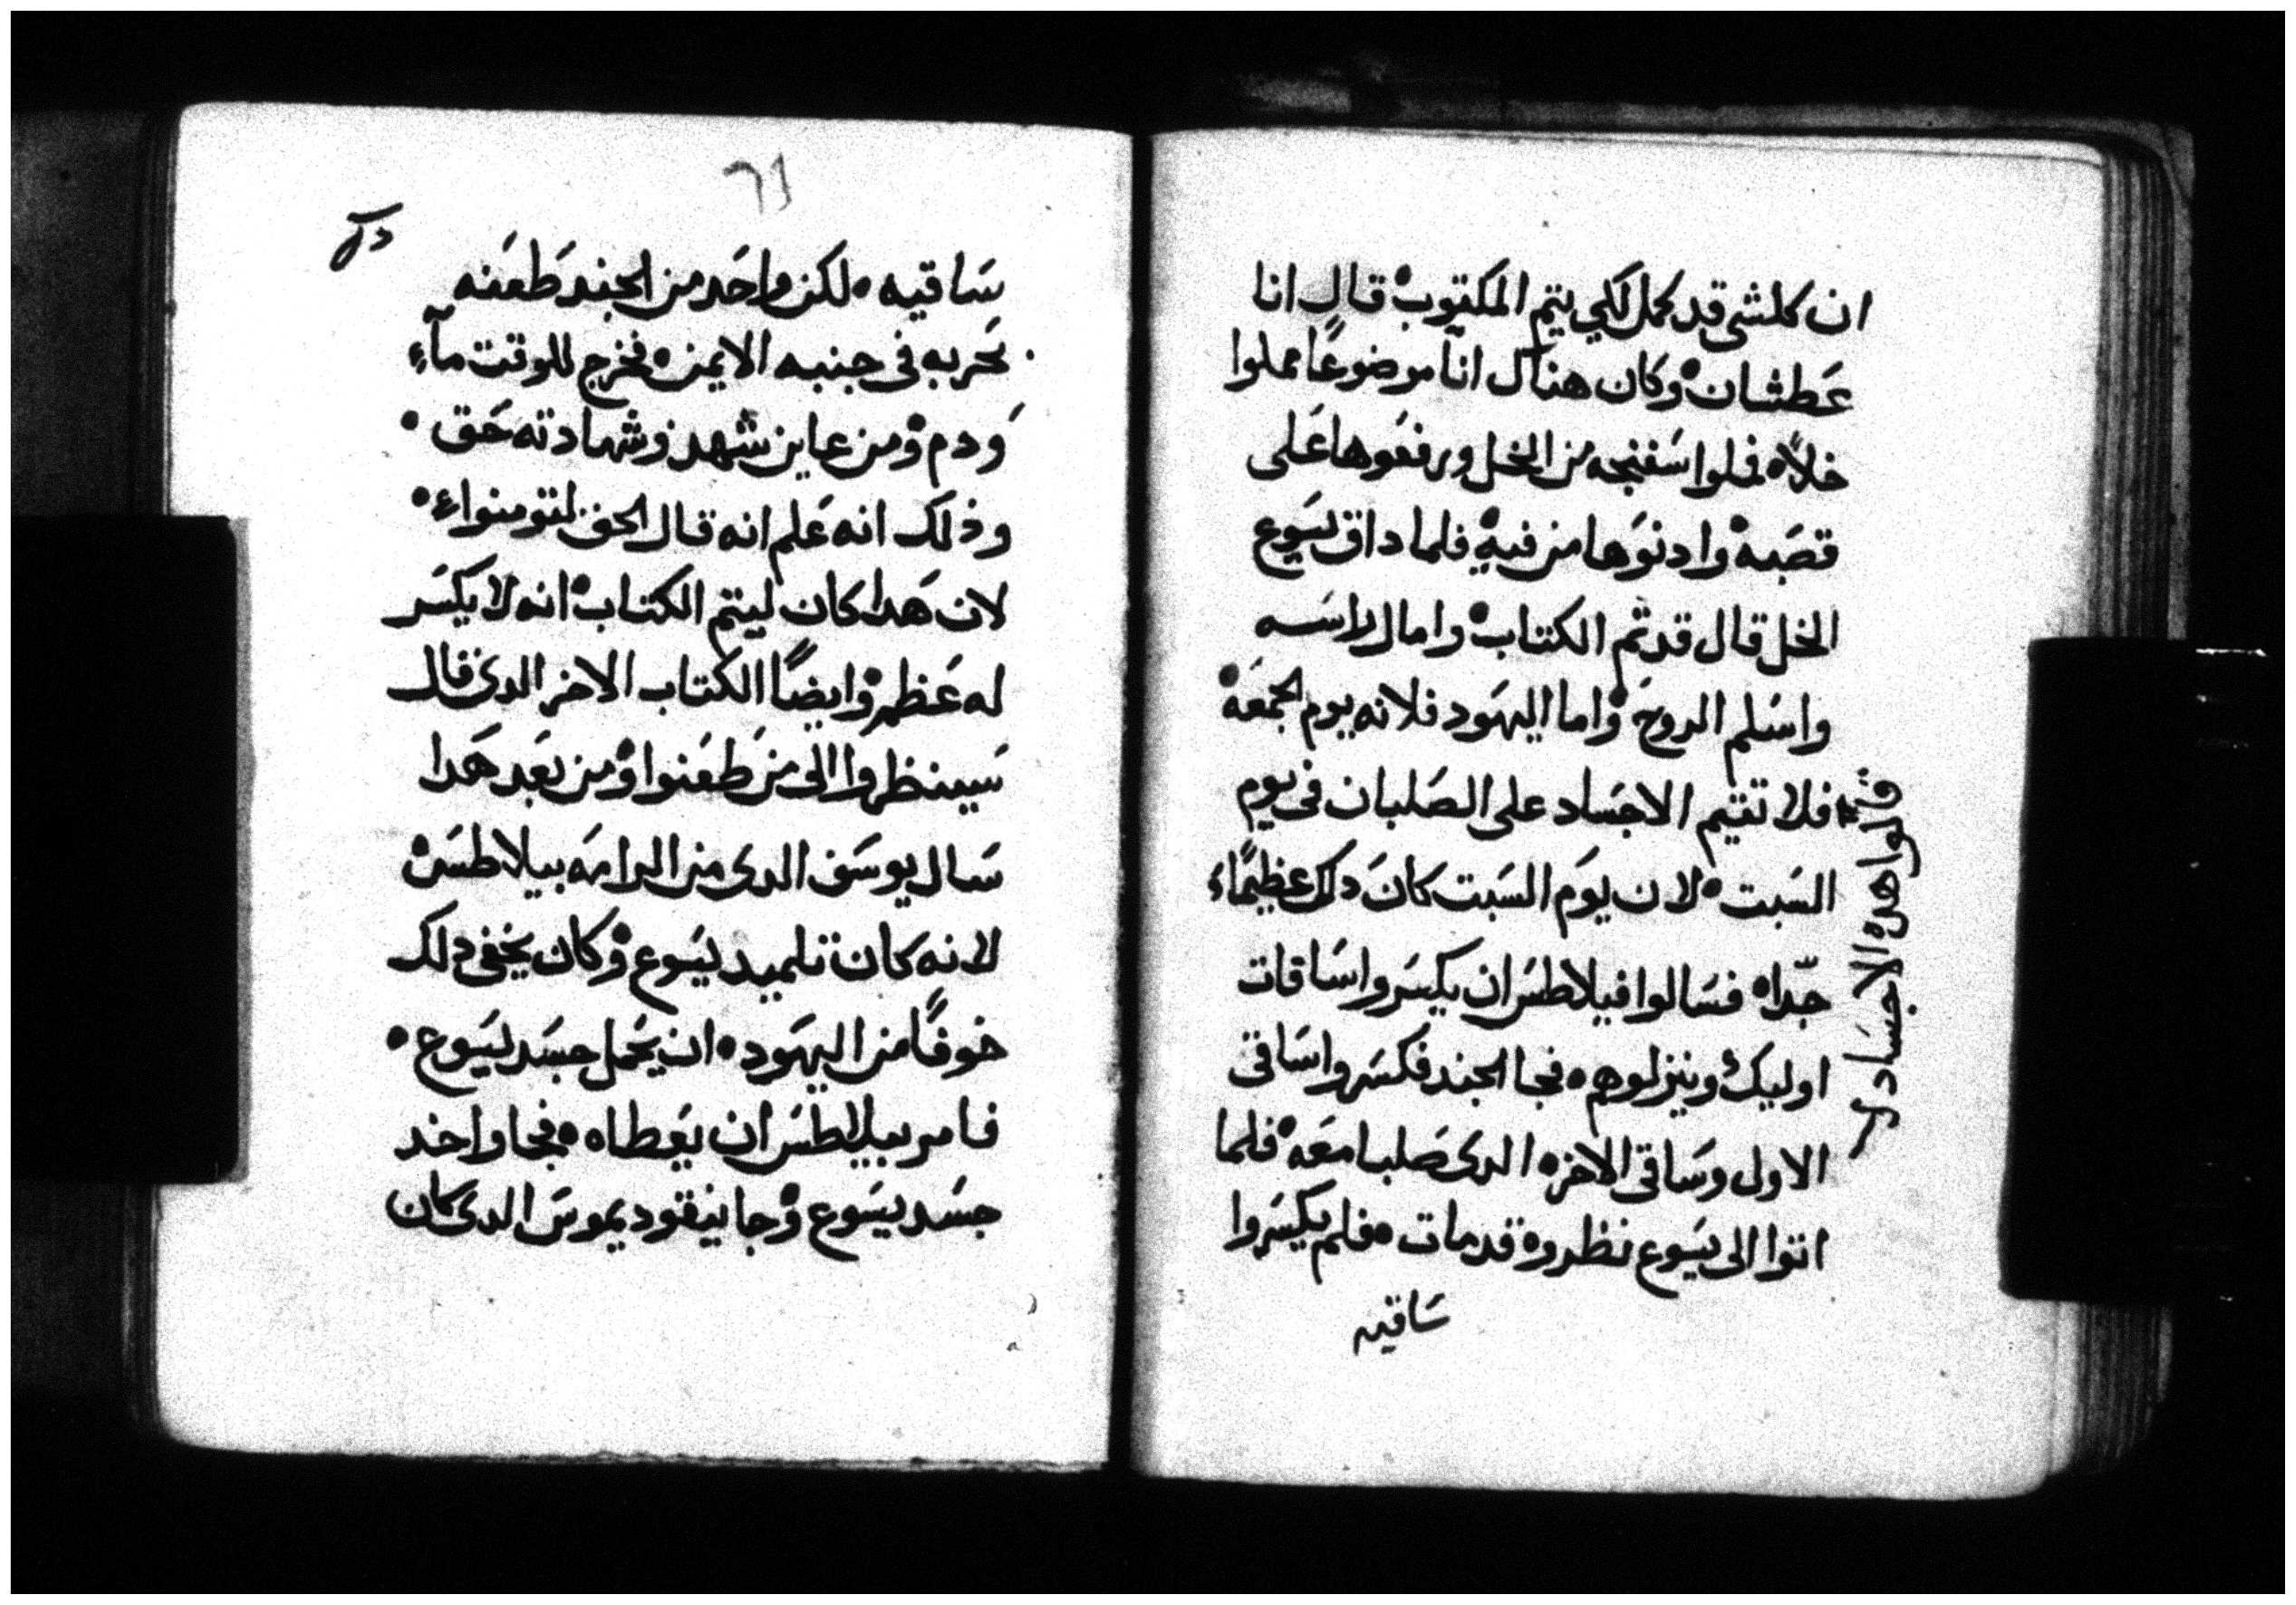 ان كلشي قد كمل لكي يتم المكتوب ه قال انا
عَطشان ه وكان هناك اناً موضوعًا مملوا
خلاً ه فملوا سَفنجه من الخل ورفعَوها عَلى
قصَبه ه وادنوَها من فيهِ ه فلما داق يسَوع
الخل قال قد تم الكتاب ه وامال راسَه
واسَلم الروحَ ه واما اليهَود فلانه يوم الجمعَه ه
فلا تقيم الاجسَاد على الصَلبان في يوم
السَبت ه لان يوَم السَبت كانَ دلك عظيمًاء
جّدا ه فسَالوا فيلاطسَ ان يكسَروا سَاقات
اوليك وينزلوهم ه فجا الجند فكسَروا سَاقى
الاول وسَاقى الاخر ه الدى صَلبا معَه ه فلما
اتوا الى يسَوع نظروه قد مات ه فلم يكسَروا
سَاقيه
قالوا هده الاجسَاد
٦١
سَاقيه ه لكن واحَد من الجند طَعَنه
بحَربه في جنبه الايمن ه فخرج للوقت مآءٍ
وَدم ه ومن عاين شهد وشهادته حَق ه
وذلك انه عَلم انه قال الحق لتومنواءٍ ه
لان هَدا كان ليتم الكتاب ه انه لا يكسَر
له عَظم ه وايضًا الكتاب الاخر الدى قال
سَينظروا الى منَ طَعَنوا ه ومن بعَد هَدا
سَال يوسَف الدى من الرامه بيلاطسَ ه
لانه كان تلميد ليسَوع ه وكان يخفى دلك
خوفًا من اليهَود ه ان يحَمل جسَد يسَوع ه
فامر بيلاطسَ ان يعَطاه ه فجا واخد
جسَد يسَوع ه وجا نيقوديموسَ الدى كان